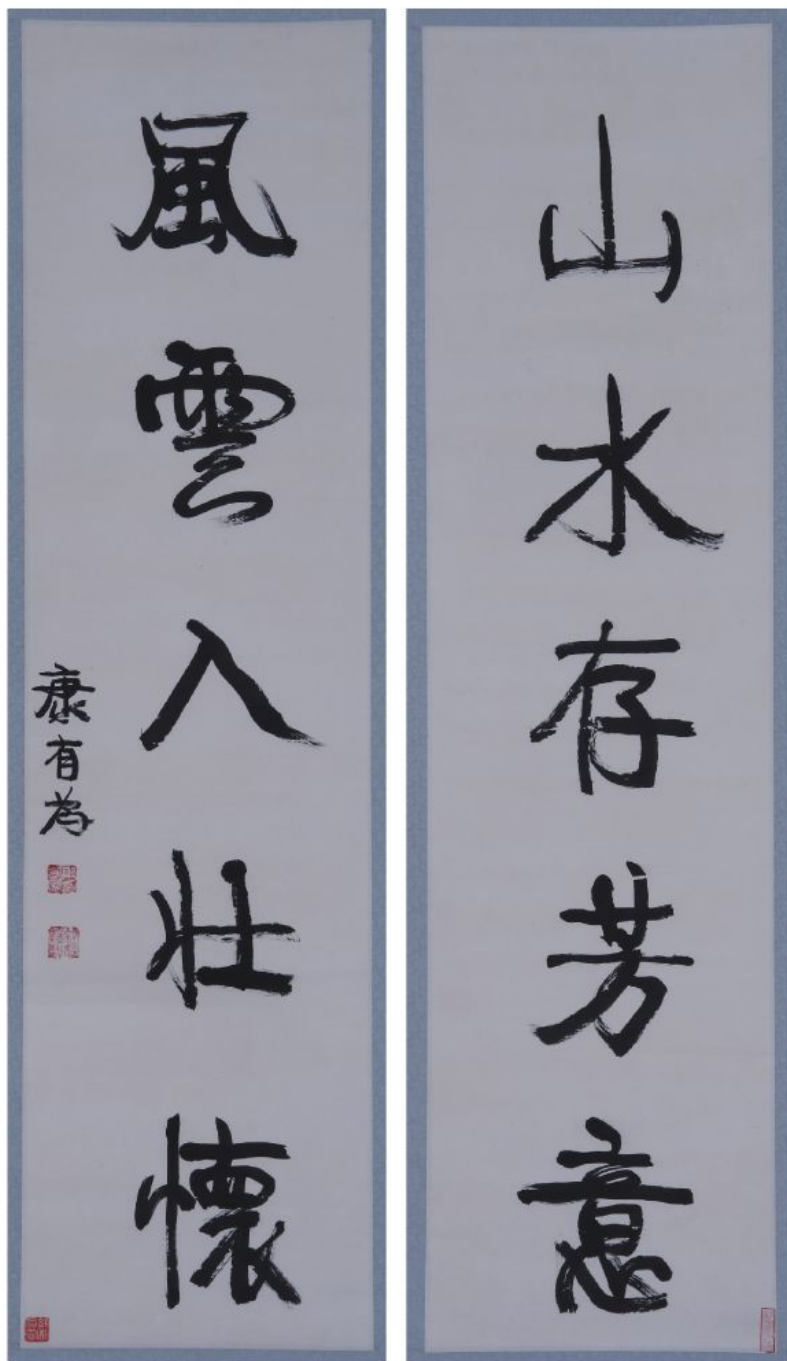 山水存芳意
風雲入壯懷
康有為